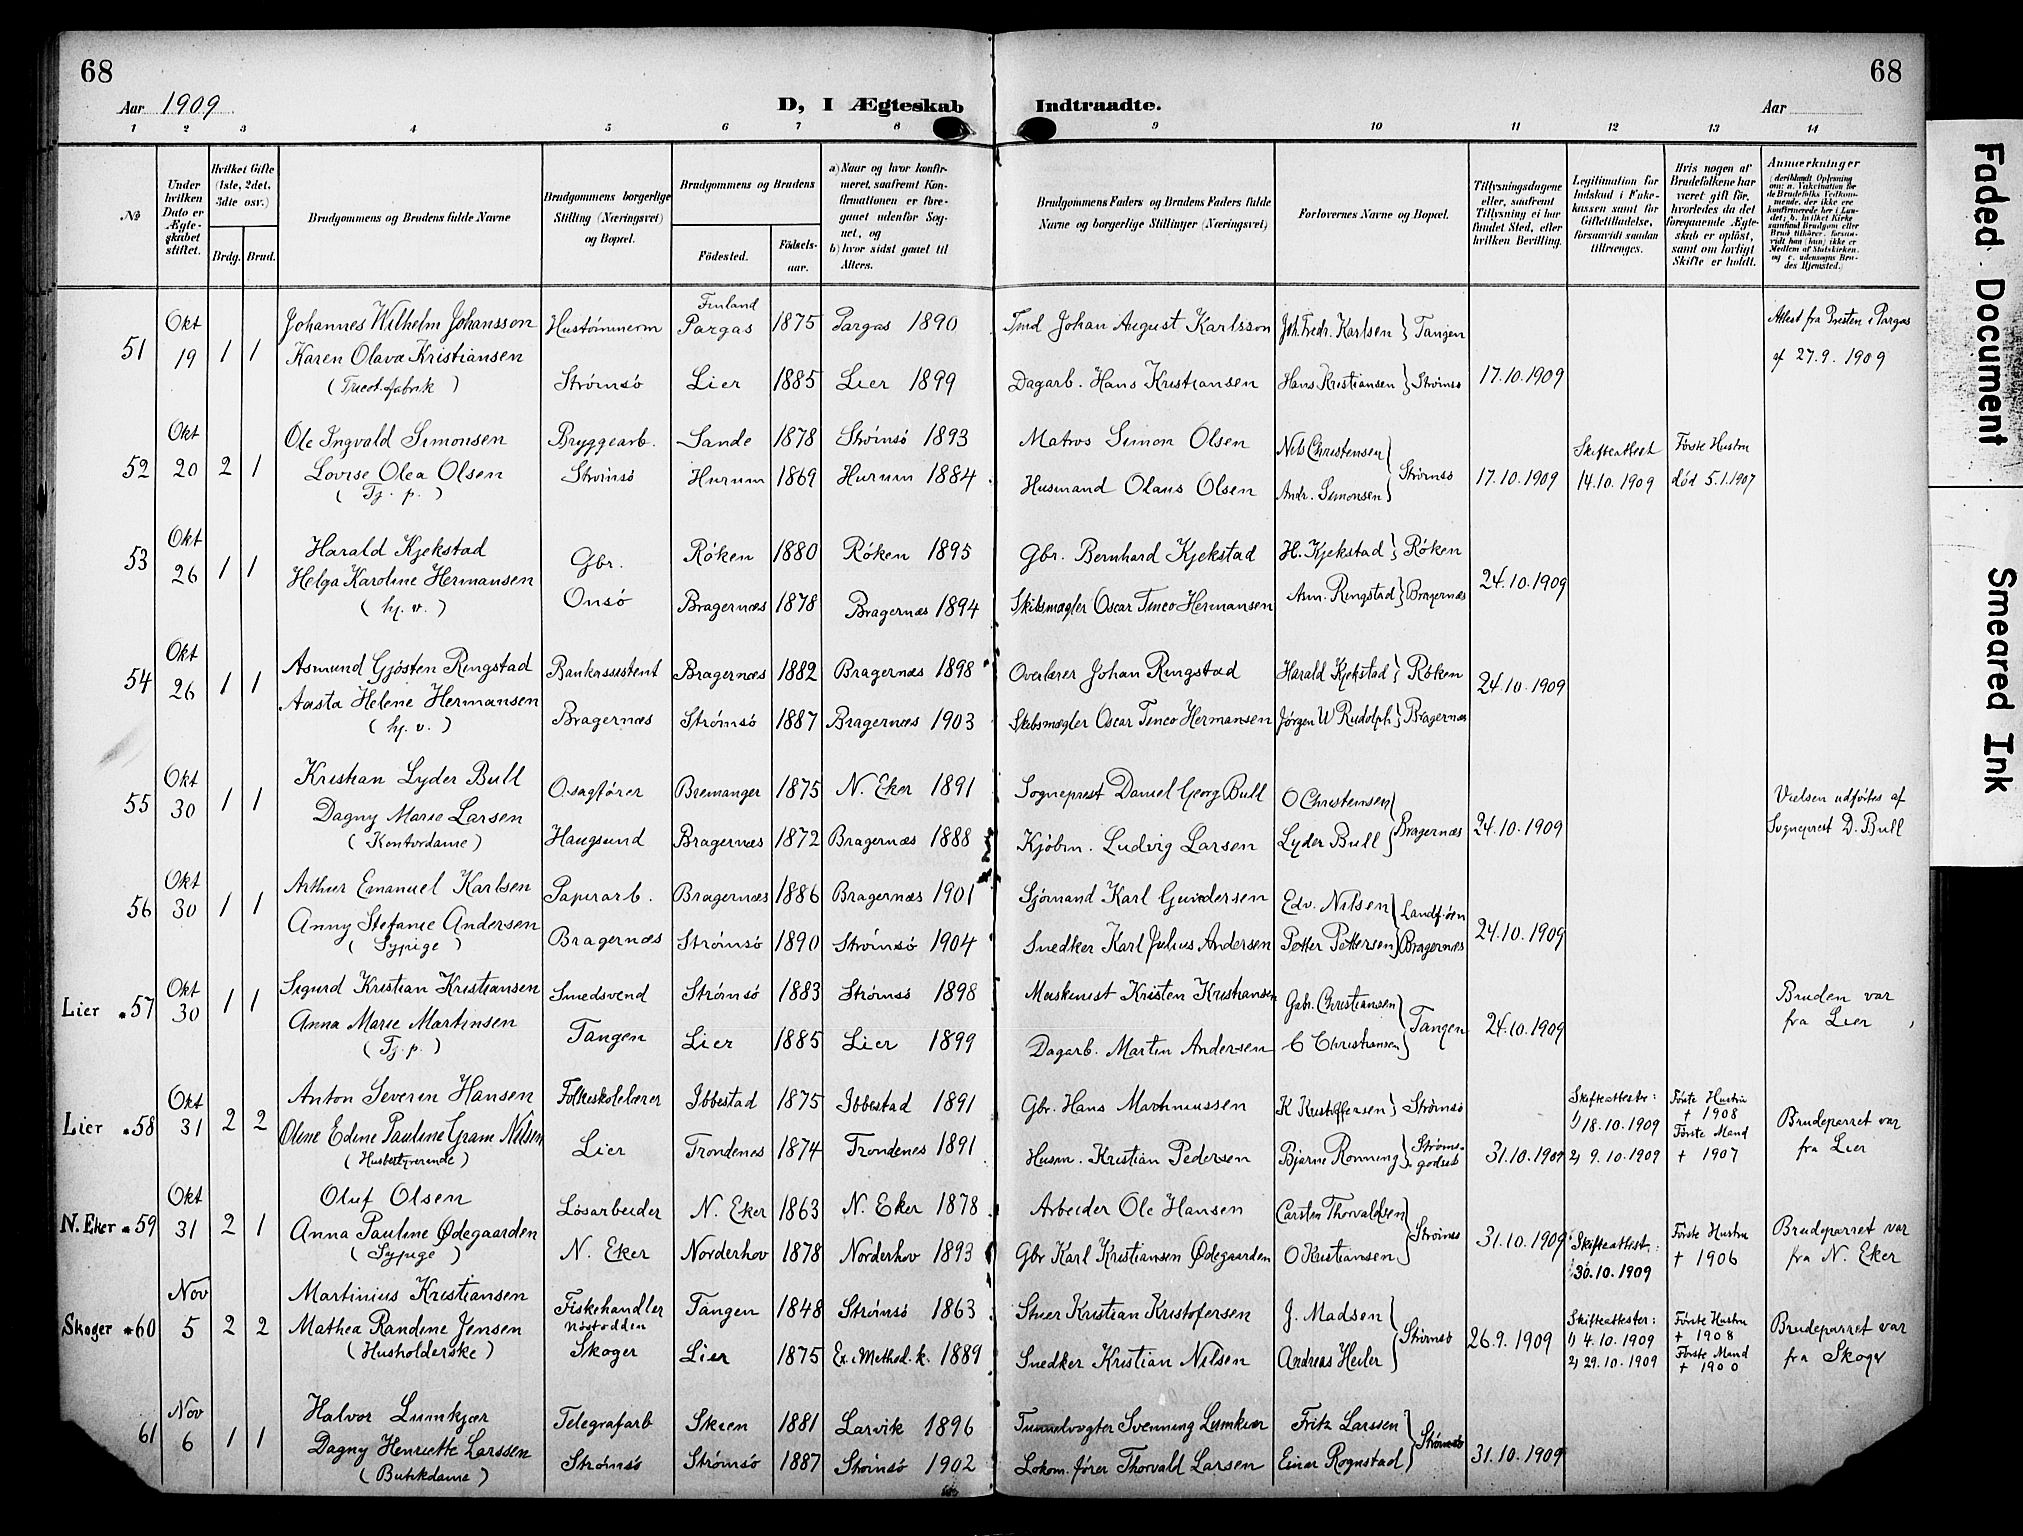 68
68
Aar 1909
D, I Ægteskab Indtraadte.
Aar
1 2 3 4 5 6 7 8 9 10 11 12 13 14
No
Under hvilken Dato er Ægteskabet stiftet.
Hvilket Gifte (1ste, 2det, 3die osv.)
Brdg. Brud.
Brudgommens og Brudens fulde Navne
Brudgommens borgerlige Stilling (Næringsvei) og Bopæl.
Brudgommens og Brudens
Fødested.
Fødselsaar.
a) Naar og hvor konfirmeret, saafremt Konfirmationen er foregaaet udenfor Sognet, og
b) hvor sidst gaaet til Alters.
Brudgommens Faders og Brudens Faders fulde Navne og borgerlige Stillinger (Næringsvei)
Forlovernes Navne og Bopæl.
Tillysningsdagene eller, saafremt Tillysning ei har fundet Sted, efter hvilken Bevilling.
Legitimation for Indskud i Enkekassen samt for Giftetilladelse, forsaavidt saadan tiltrænges.
Hvis nogen af Brudefolkene har været gift før, hvorledes da det foregaaende Ægteskab er opløst, samt om lovligt Skifte er holdt.
Anmerkninger
51 Okt 19 1 1 Johannes Wilhelm Johansson Hustømmerm Finland Pargas 1875 Pargas 1890 Johan August Karlsson Joh. Fredr. Karlsen } Tangen Attest fra Presten i Pargas
Karen Olava Kristiansen af 27.9. 1909
(Tricot.fabrik) Strømsö Lier 1885 Lier 1899 Dagarb. Hans Kristiansen Hans Kristiansen } Strömsö 17.10.1909
52 Okt 20 2 1 Ole Ingvald Simonsen Bryggearb. Sande 1878 Strömsö 1893 Matros Simon Olsen Nils Christensen Skifteattest Første Hustru
Lovise Olea Olsen Strömsö Hurum 1869 Hurum 1884 Husmand Olaus Olsen Andr. Simonsen } Strømsö 17.10.1909 14.10.1909 död 5.1.1907
(Tj. p.)
53 Okt 26 1 1 Harald Kjekstad Gbr. Röken 1880 Röken 1895 Gbr. Bernhard Kjekstad H. Kjekstad } Röken
Helga Karoline Hermansen Onsö Bragernæs 1878 Bragernæs 1894 Skibsmægler Oscar Tinco Hermansen Asm. Ringstad } Bragernæs 24.10.1909
(hj. v.)
54 Okt 26 1 1 Asmund Gjösten Ringstad Bankassistent Bragernæs 1882 Bragernæs 1898 Overlærer Johan Ringstad Harald Kjekstad } Röken 24.10.1909
Aasta Helene Hermansen Bragernæs Strömsö 1887 Bragernæs 1903 Skibsmægler Oscar Tinco Hermansen Jørgen W Rudolph } Bragernæs
(hj. v.)
55 Okt 30 1 1 Kristian Lyder Bull O.sagförer Bremanger 1875 N. Eker 1891 Sogneprest Daniel Georg Bull O Christensen Vielsen udførtes af
Dagny Marie Larsen Haugsund Bragernæs 1872 Bragernæs 1888 Kjöbm. Ludvig Larsen Lyder Bull } Bragernæs 24.10.1909 Sogneprest D. Bull
(Kontordame)
56 Okt 30 1 1 Arthur Emanuel Karlsen Papirarb. Bragernæs 1886 Bragernæs 1901 Sjömand Karl Gundersen Edv. Nilsen } Landfaöen
Anny Stefanie Andersen Bragernæs Strömsö 1890 Strömsö 1904 Snedker Karl Julius Andersen Petter Pettersen } Bragernæs 24.10.1909
(Sypige)
Lier 57 Okt 30 1 1 Sigurd Kristian Kristiansen Smedsvend Strömsö 1883 Strömsö 1898 Maskinist Kristen Kristiansen Gabr. Christiansen Bruden var
Anna Marie Martinsen Tangen Lier 1885 Lier 1899 Dagarb. Martin Andersen C Christiansen } Tangen 24.10.1909 fra Lier
(Tj. p.)
Lier 58 Okt 31 2 2 Anton Severin Hansen Folkeskolelærer Ibbestad 1875 Ibbestad 1891 Gbr. Hans Martinussen K Kristoffersen } Strömsö Skifteattester: 1) 18.10.1909 Første Hustru † 1908 Brudeparret var
Oline Edine Pauline Gram Nilsen Lier Trondenes 1874 Trondenes 1891 Husm. Kristian Pedersen Bjarne Rönning } Strømsgodset 31.10.1909 2) 9.10.1909 Første Mand † 1907 fra Lier
(Husbestyrerinde)
N. Eker 59 Okt 31 2 1 Oluf Olsen Lösarbeider N. Eker 1863 N. Eker 1878 Arbeider Ole Hansen Carsten Thorvaldsen Skifteattest: Første Hustru Brudeparret var
Anna Pauline Ødegaarden N. Eker Norderhov 1878 Norderhov 1893 Gbr Karl Kristiansen Ødegaarden O Kristiansen } Strömsö 31.10.1909 30.10.1909 † 1906 fra N. Eker
(Sypige)
Skoger 60 Nov 5 2 2 Martinius Kristiansen Fiskehandler Nöstodden Tangen 1848 Strömsö 1863 Kristian Kristofersen J. Madsen Skifteattester: 1) 4.10.1909 Første Hustru † 1908 Brudeparret var
Mathea Randine Jensen Skoger Lier 1875 Ex. i Method. k. 1889 Snedker Kristian Nilsen Andreas Heiler } Strömsö 26.9.1909 2) 29.10.1909 Første Mand † 1900 fra Skoger
(Husholderske)
61 Nov 6 1 1 Halvor Lumkjær Telegrafarb Skien 1881 Larvik 1896 Tunnelvogter Svenning Lumkiær Fritz Larssen
Dagny Henriette Larssen Strömsö Strömsö 1887 Strömsö 1902 Lokom. förer Thorvald Larsen Einar Rognstad } Strömsö 31.10.1909
(Butikdame)
Faded Document
Smeared Ink